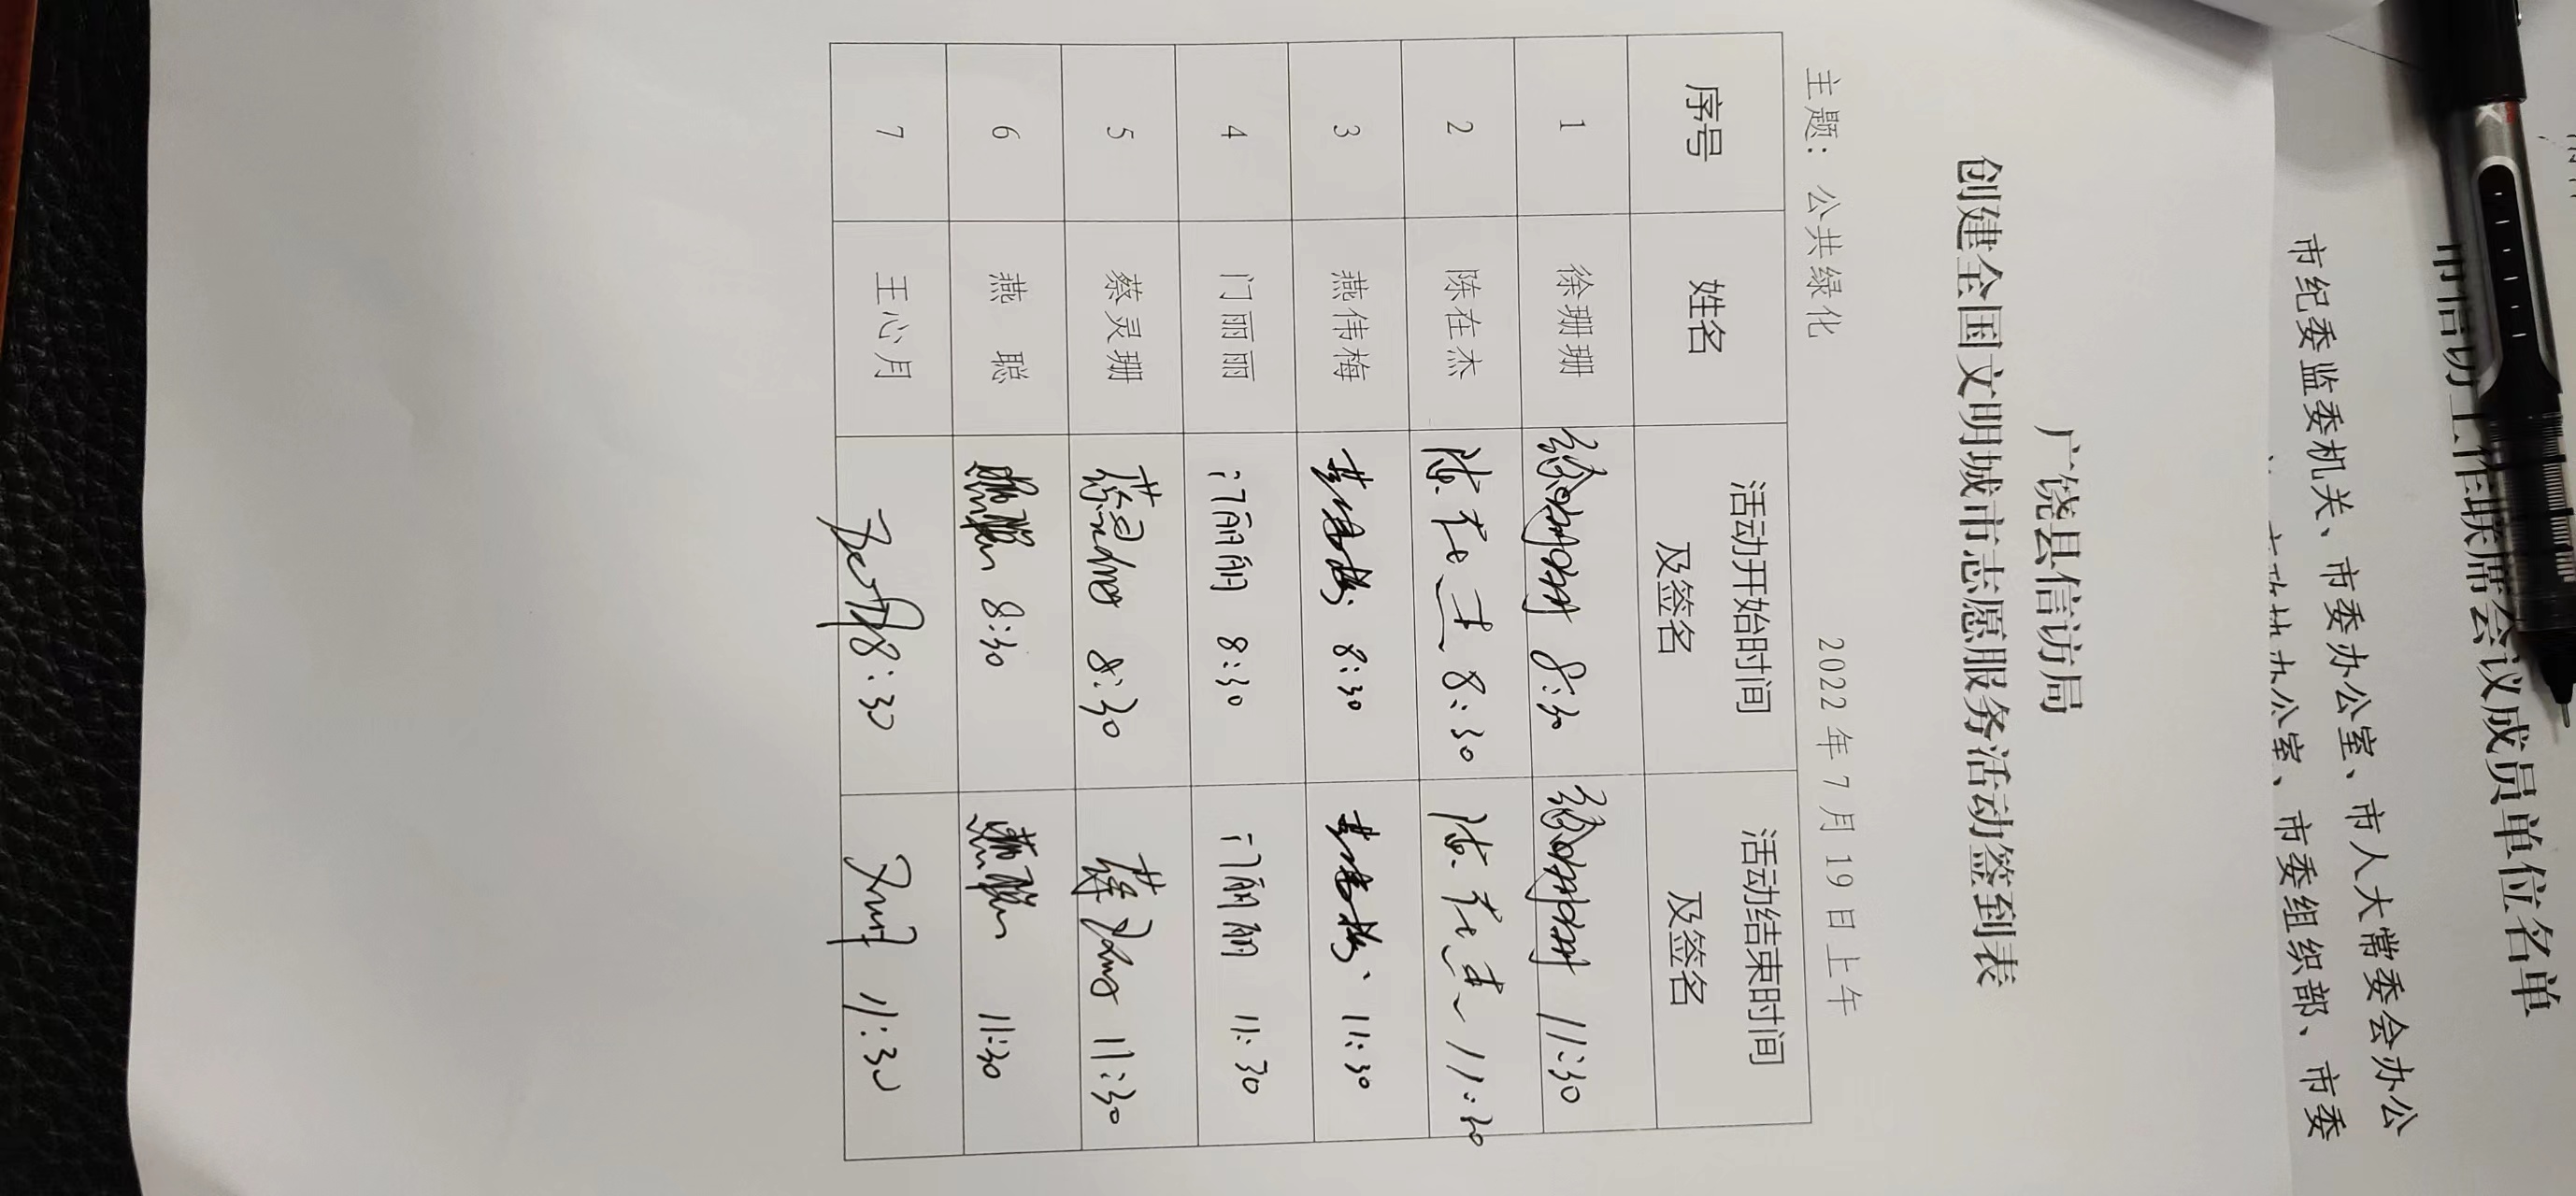 广饶县信访局
创建全国文明城市志愿服务活动签到表
主题：公共绿化 2022年7月19日上午
序号 姓名 活动开始时间及签名 活动结束时间及签名
1 徐珊珊 徐珊珊 8:30 徐珊珊 11:30
2 陈在杰 陈在杰 8:30 陈在杰 11:30
3 燕伟梅 燕伟梅 8:30 燕伟梅 11:30
4 门丽丽 门丽丽 8:30 门丽丽 11:30
5 蔡灵珊 蔡灵珊 8:30 蔡灵珊 11:30
6 燕聪 燕聪 8:30 燕聪 11:30
7 王心月 8:30 11:30
市信访工作联席会议成员单位名单
市纪委监委机关、市委办公室、市人大常委会办公
办公室、市委组织部、市委